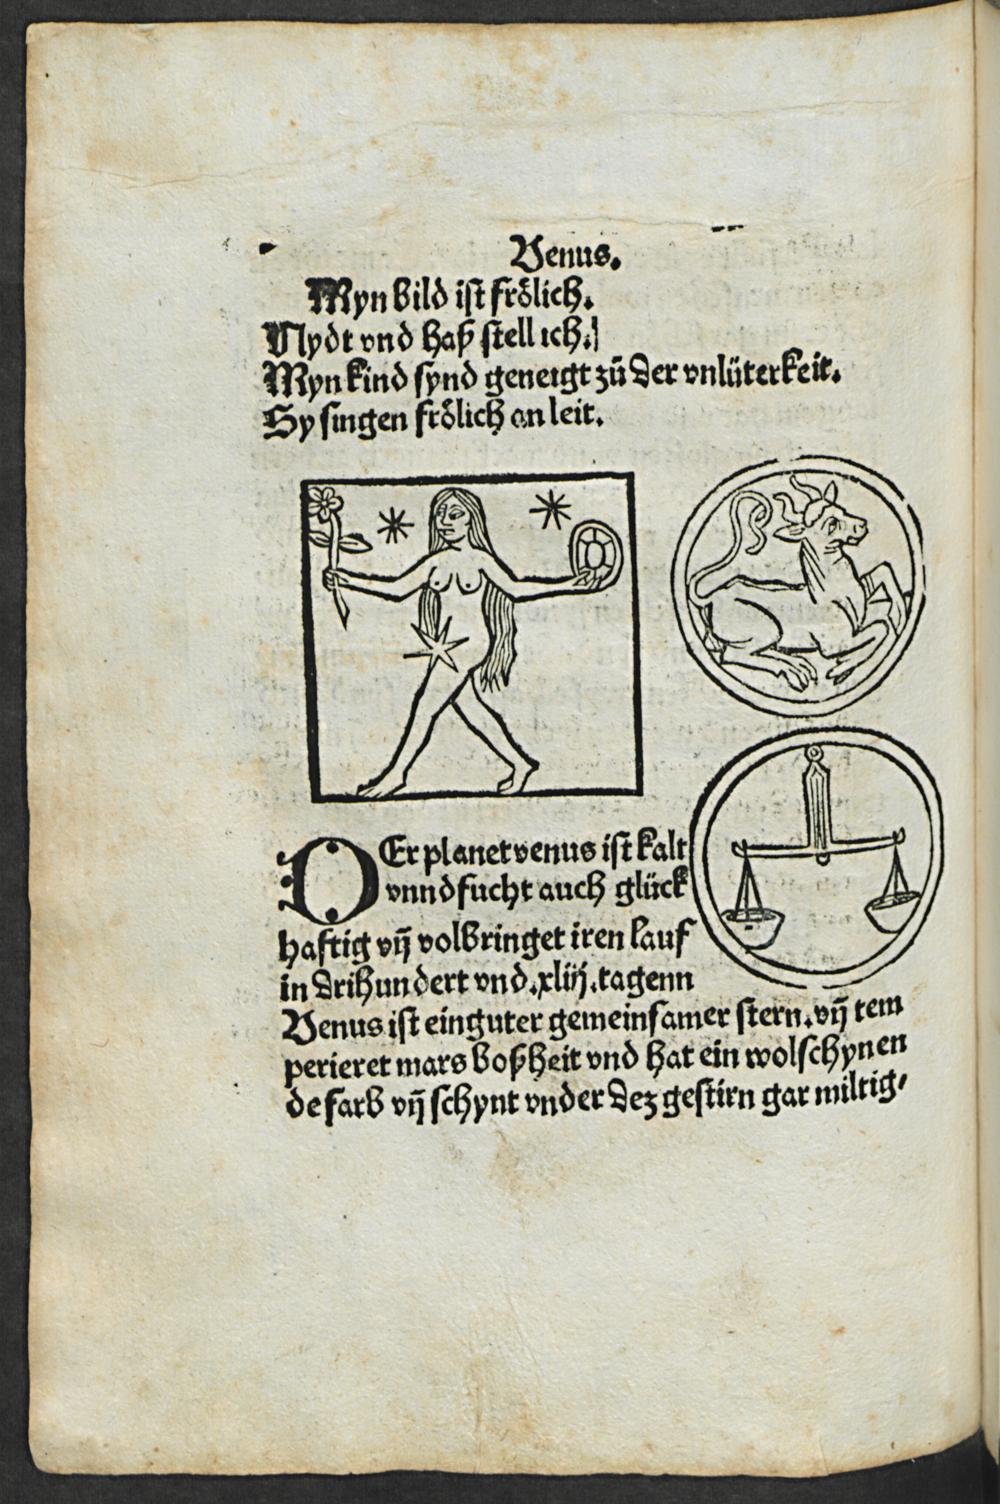 Venus.
Myn bild ist frölich.
Nydt vnd haß stell ich.
Myn kind synd geneigt zů der vnlüterkeit.
Sy singen frölich on leit.
DEr planet venus ist kalt
vnnd fucht auch glück
haftig vñ volbringet iren lauf
in drihundert vnd .xliij. tagenn
Venus ist ein guter gemeinsamer stern. vñ tem
perieret mars boßheit vnd hat ein wolschynen
de farb vñ schynt vnder dez gestirn gar miltig,